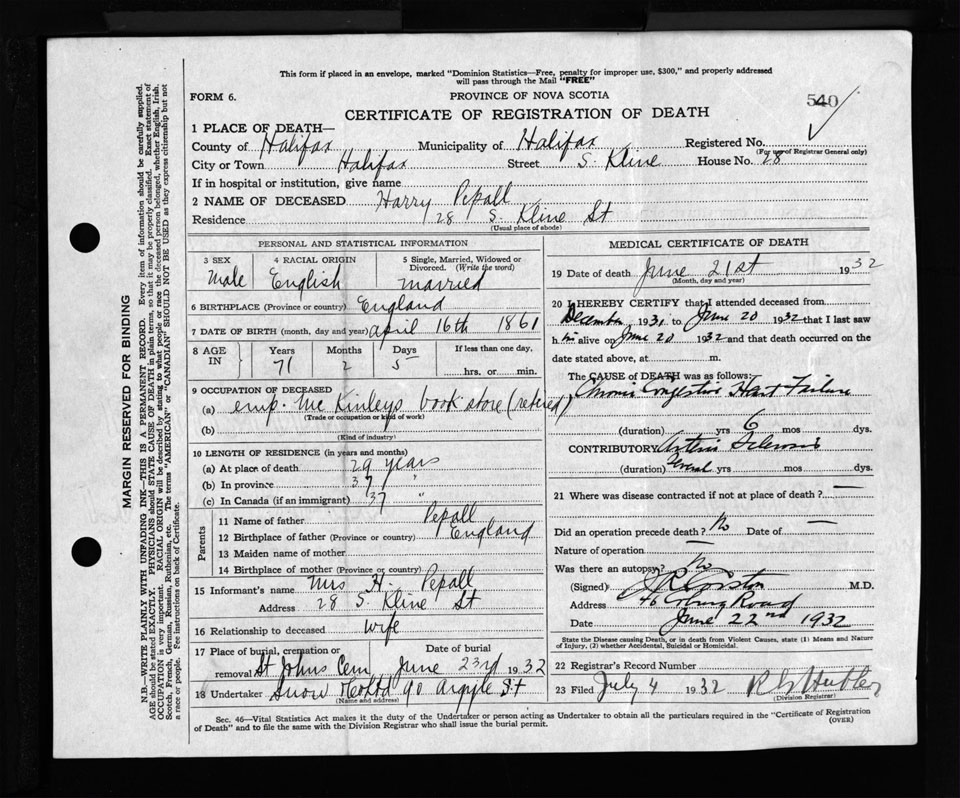 This form if placed in an envelope, marked "Dominion Statistics—Free, penalty for improper use, $300," and properly addressed
will pass through the Mail "FREE"
FORM 6.
PROVINCE OF NOVA SCOTIA
540
CERTIFICATE OF REGISTRATION OF DEATH
1 PLACE OF DEATH—
County of Halifax Municipality of Halifax Registered No.
(For use of Registrar General only)
City or Town Halifax Street S. Kline House No. 28
If in hospital or institution, give name
2 NAME OF DECEASED Harry Pepall
Residence 28 S. Kline St
(Usual place of abode)
PERSONAL AND STATISTICAL INFORMATION
3 SEX 4 RACIAL ORIGIN 5 Single, Married, Widowed or
Divorced. (Write the word)
Male English married
6 BIRTHPLACE (Province or country) England
7 DATE OF BIRTH (month, day and year) april 16th 1861
8 AGE IN Years Months Days If less than one day,
71 2 5 hrs. or min.
9 OCCUPATION OF DECEASED
(a) emp. Mc Kinleys book store (retired)
(Trade or occupation or kind of work)
(b)
(Kind of industry)
10 LENGTH OF RESIDENCE (in years and months)
(a) At place of death 29 years
(b) In province 37 "
(c) In Canada (if an immigrant) 37 "
Parents
11 Name of father Pepall
12 Birthplace of father (Province or country) England
13 Maiden name of mother
14 Birthplace of mother (Province or country)
15 Informant's name Mrs H. Pepall
Address 28 S. Kline St
16 Relationship to deceased wife
17 Place of burial, cremation or Date of burial
removal St Johns Cem June 23rd 1932
18 Undertaker Snow & Co Ltd 90 Argyle St
(Name and address)
MEDICAL CERTIFICATE OF DEATH
19 Date of death June 21st 1932
(Month, day and year)
20 I HEREBY CERTIFY that I attended deceased from
December 1931 to June 20 1932 that I last saw
h im alive on June 20 1932 and that death occurred on the
date stated above, at m.
The CAUSE OF DEATH was as follows:
Chronic Congestive Heart Failure
(duration) yrs 6 mos dys.
CONTRIBUTORY Arterio Sclerosis
(duration) Several yrs mos dys.
21 Where was disease contracted if not at place of death? —
Did an operation precede death? No Date of —
Nature of operation —
Was there an autopsy? No
(Signed) M.D.
Address 46 Road
Date June 22nd 1932
State the Disease causing Death, or in death from Violent Causes, state (1) Means and Nature
of Injury, (2) whether Accidental, Suicidal or Homicidal.
22 Registrar's Record Number
23 Filed July 4 1932
(Division Registrar)
Sec. 46—Vital Statistics Act makes it the duty of the Undertaker or person acting as Undertaker to obtain all the particulars required in the "Certificate of Registration
of Death" and to file the same with the Division Registrar who shall issue the burial permit. (OVER)
MARGIN RESERVED FOR BINDING
N.B.—WRITE PLAINLY WITH UNFADING INK—THIS IS A PERMANENT RECORD. Every item of information should be carefully supplied.
AGE should be stated EXACTLY. PHYSICIANS should STATE CAUSE OF DEATH in plain terms, so that it may be properly classified. Exact statement of
OCCUPATION is very important. RACIAL ORIGIN will be described by stating to what people or race the deceased person belonged, whether English, Irish,
Scotch, French, German, Russian, Ruthenian, etc. The terms "AMERICAN" or "CANADIAN" SHOULD NOT BE USED as they express citizenship but not
a race or people. See instructions on back of Certificate.